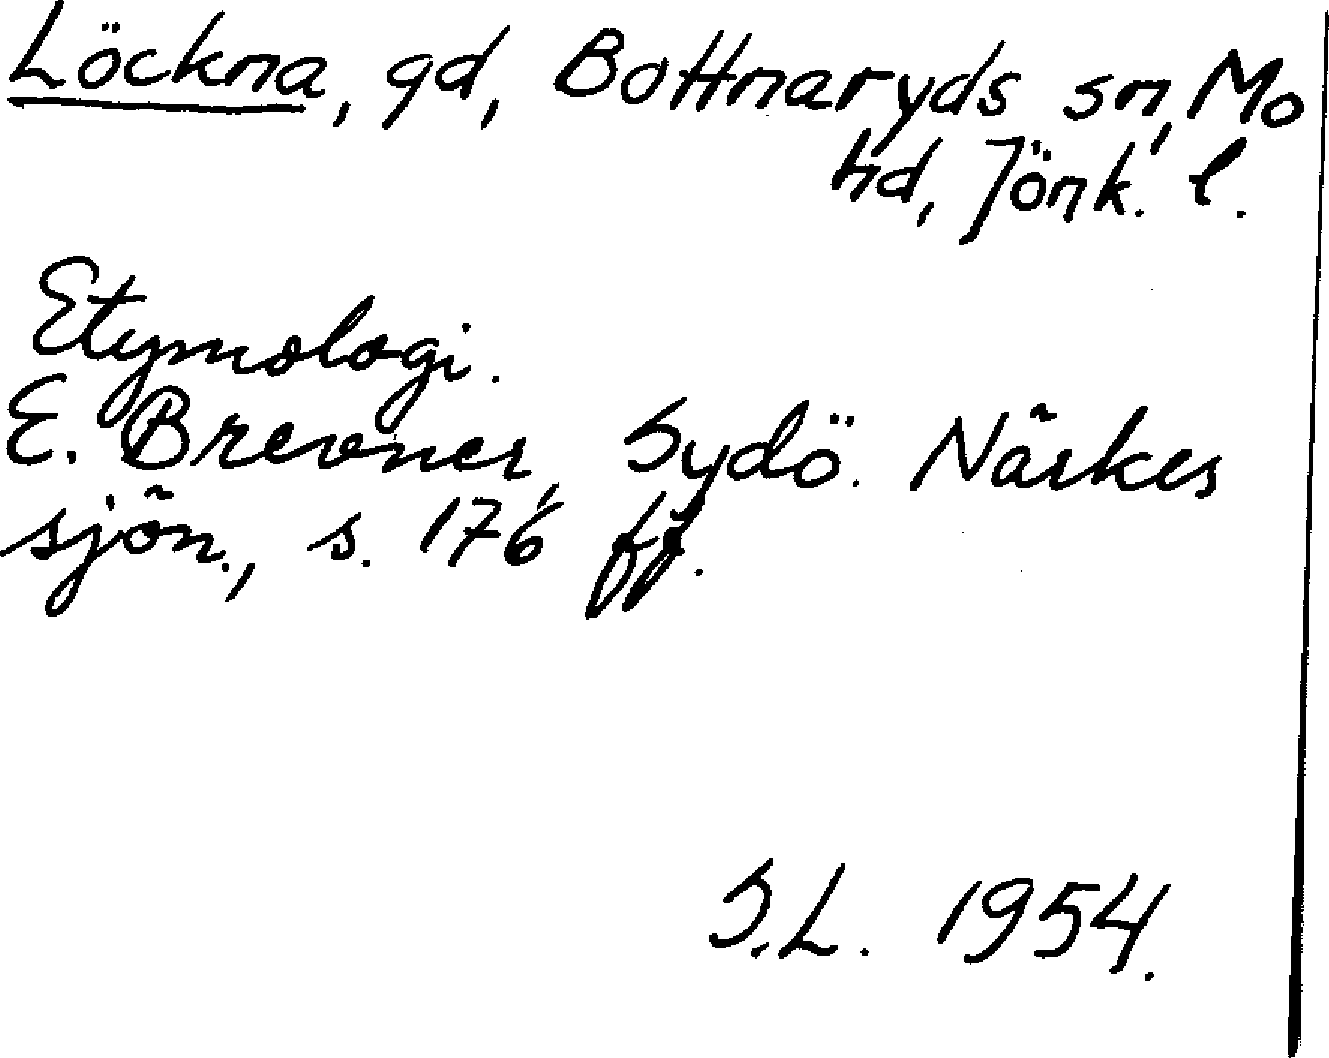 Löckna, gd, Bottnaryds sn, Mo
hd, Jönk. l.
Etymologi.
E. Brevner, Sydö. Närkes
sjön., s. 176 ff.
S.L. 1954.